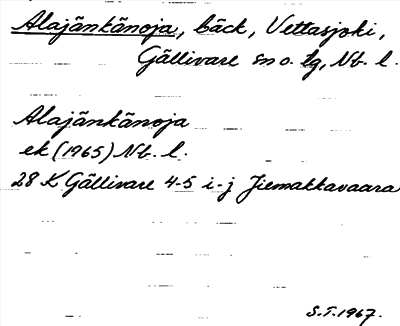 Alajänkänoja, bäck, Vettasjoki,
Gällivare sn o. lg, Nb. l.
Alajänkänoja
ek (1965) Nb. l.
28 K Gällivare 4-5 i-j Jiemakkavaara
S.T. 1967.